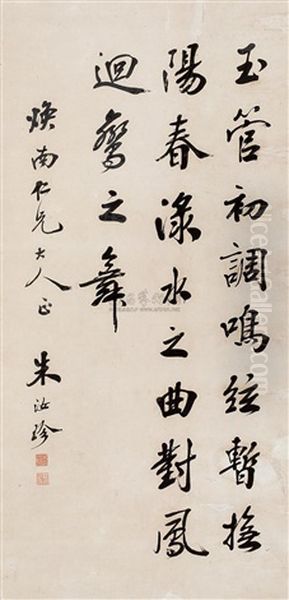 玉管初調鳴絃暫撫
陽春淥水之曲對鳳
迴鸞之舞
煥南仁兄大人正
朱汝珍